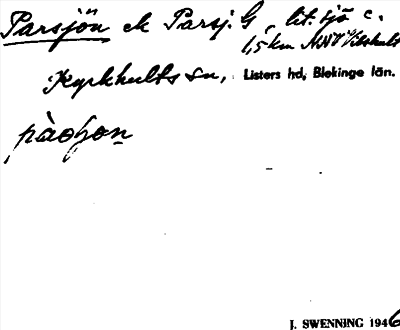 Parsjön el Parsj. G, lit. sjö c.
1,5 km NNV Vilshult
Kyrkhults sn, Listers hd, Blekinge län.
J. SWENNING 1946